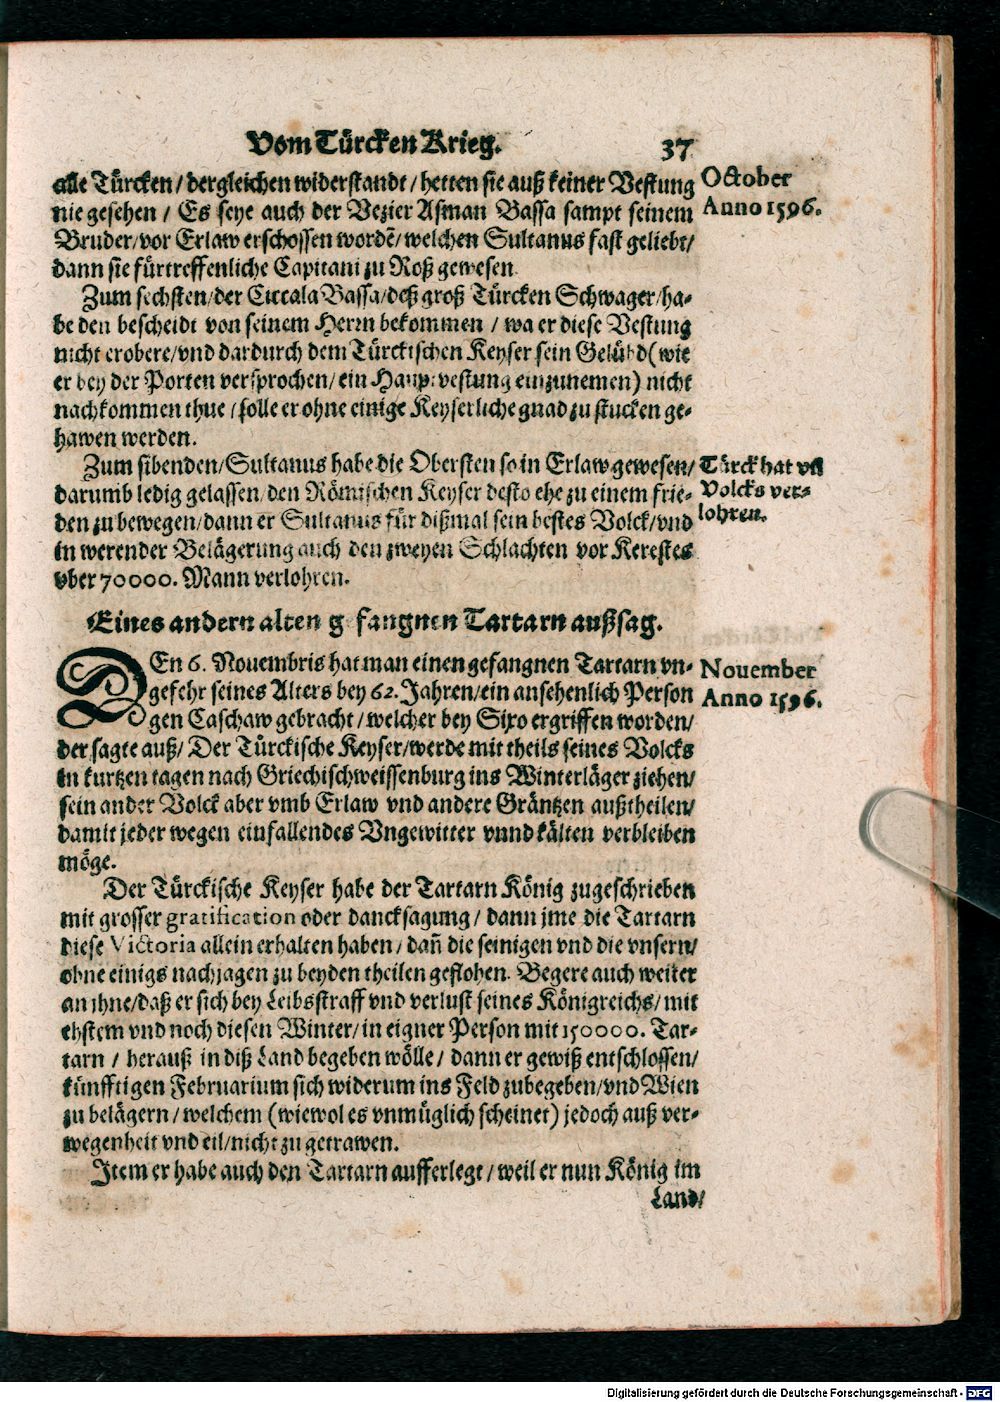 Vom Türcken Krieg. 37
alle Türcken / dergleichen widerstandt / hetten sie auß keiner Vestung
nie gesehen / Es seye auch der Vezier Asman Bassa sampt seinem
Bruder / vor Erlaw erschossen wordẽ / welchen Sultanus fast geliebt /
dann sie fürtreffenliche Capitani zu Roß gewesen.
October
Anno 1596.
Zum sechsten / der Ciccala Bassa / deß groß Türcken Schwager / ha-
be den bescheidt von seinem Herrn bekommen / wa er diese Vestung
nicht erobere / vnd dardurch dem Türckischen Keyser sein Gelübd (wie
er bey der Porten versprochen / ein Hauptvestung einzunemen) nicht
nachkommen thue / solle er ohne einige Keyserliche gnad zu stucken ge-
hawen werden.
Zum sibenden / Sultanus habe die Obersten so in Erlaw gewesen /
darumb ledig gelassen / den Römischen Keyser desto ehe zu einem frie-
den zu bewegen / dann er Sultanus für dißmal sein bestes Volck / vnd
in werender Belägerung auch den zweyen Schlachten vor Kerestes
vber 70000. Mann verlohren.
Türck hat vil
Volcks ver-
lohren.
Eines andern alten gefangnen Tartarn außsag.
DEn 6. Nouembris hat man einen gefangnen Tartarn vn-
gefehr seines Alters bey 62. Jahren / ein ansehenlich Person
gen Caschaw gebracht / welcher bey Sixo ergriffen worden /
der sagte auß / Der Türckische Keyser / werde mit theils seines Volcks
in kurtzen tagen nach Griechischweissenburg ins Winterläger ziehen /
sein ander Volck aber vmb Erlaw vnd andere Gräntzen außtheilen /
damit jeder wegen einfallendes Vngewitter vnnd kälten verbleiben
möge.
Nouember
Anno 1596.
Der Türckische Keyser habe der Tartarn König zugeschrieben
mit grosser gratification oder dancksagung / dann jme die Tartarn
diese Victoria allein erhalten haben / dañ die seinigen vnd die vnsern /
ohne einigs nachjagen zu beyden theilen geflohen. Begere auch weiter
an ihne / daß er sich bey Leibsstraff vnd verlust seines Königreichs / mit
ehstem vnd noch diesen Winter / in eigner Person mit 150000. Tar-
tarn / herauß in diß Land begeben wölle / dann er gewiß entschlossen /
künfftigen Februarium sich widerum ins Feld zubegeben / vnd Wien
zu belägern / welchem (wiewol es vnmüglich scheinet) jedoch auß ver-
wegenheit vnd eil / nicht zu getrawen.
Item er habe auch den Tartarn aufferlegt / weil er nun König im
Land /
Digitalisierung gefördert durch die Deutsche Forschungsgemeinschaft - DFG